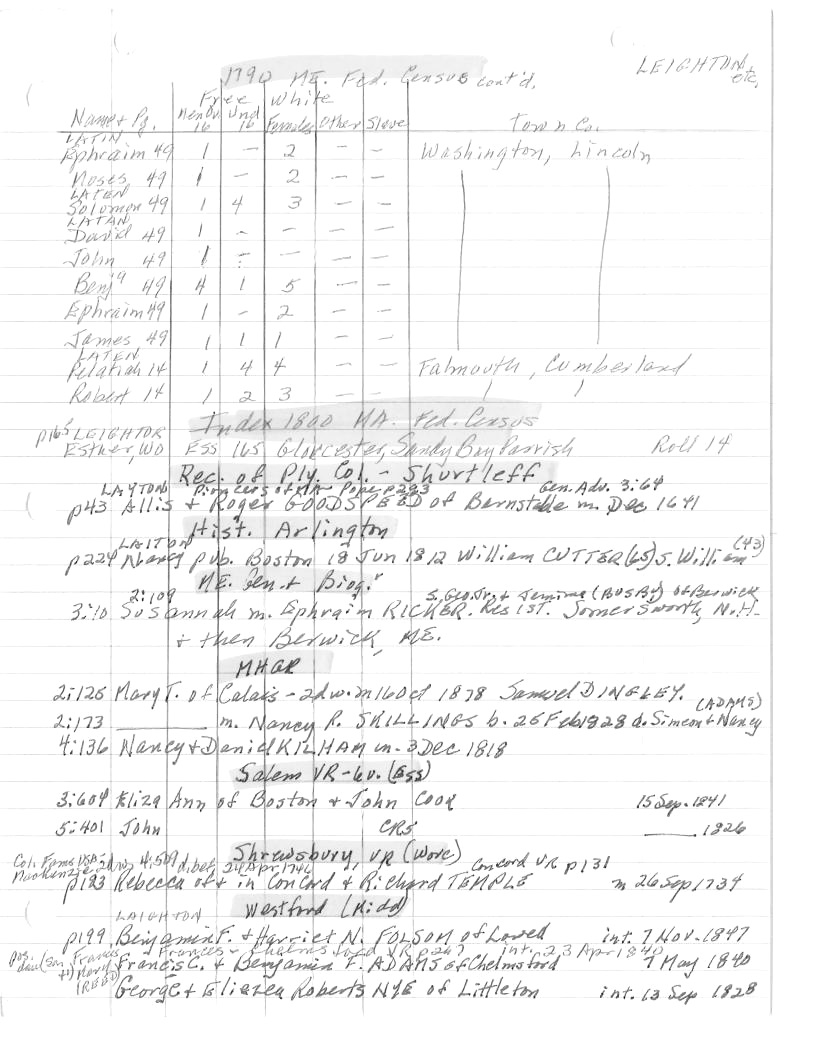 1790 ME. Fed. Census cont'd. LEIGHTON, etc.
Free White
Name & Pg. Men Ov. 16 Und 16 Females Other Slave Town Co.
LATIN
Ephraim 49 1 – 2 – – Washington, Lincoln
Moses 49 1 – 2 – –
LATEN
Solomon 49 1 4 3 – –
LATAN
David 49 1 – – – –
John 49 1 – – – –
Benja 49 4 1 5 – –
Ephraim 49 1 – 2
James 49 1 1 1 – –
LATEN
Pelatiah 14 1 4 4 – – Falmouth, Cumberland
Robert 14 1 2 3 – –
Index 1800 MA. Fed. Census
p165 LEIGHTOR
Esther, Wo Ess 165 Gloucester, Sandy Bay Parrish Roll 14
Rec. of Ply. Col. - Shurtleff
LAYTON Pioneers of MA - Pope p283 Gen. Adv. 3:64
p43 Allis & Roger GOODSPEED of Bernstable m. Dec 1641
Hist. Arlington
LAITON
p224 Nancy pub. Boston 18 Jun 1812 William CUTTER (65) s. William (43)
ME. Gen. & Biog.
2:109 S. Geo. Jr. & Jemima (BUSBY) of Berwick
3:10 Susannah m. Ephraim RICKER. Res 1st. Somersworth, N.H.
& then Berwick, ME.
MHGR
2:126 Mary T. of Calais - 2d w. m 16 Oct 1878 Samuel DINGLEY.
2:173 ______ m. Nancy R. SKILLINGS b. 26 Feb 1828 d. Simeon & Nancy (ADAMS)
4:136 Nancy & Daniel KILHAM m. 3 Dec 1818
Salem VR - 6v. (Ess)
3:604 Eliza Ann of Boston & John Cook 15 Sep. 1841
5:401 John CR5 ____ 1826
Shrewsbury, VR (Worc)
Col. Fams USA - Mackenzie 2d w. 4:509 d. bet. 24 Apr 1746 Concord VR p131
p183 Rebecca of & in Concord & Richard TEMPLE m 26 Sep 1734
Westford (Midd)
LEIGHTON
p199 Benjamin F. & Harriet N. FOLSOM of Lowell int. 7 Nov. 1847
pos. dau (son Francis & Mary (REED) Frances - Chelmsford VR p247 int. 23 Apr 1840
Francis C. & Benjamin F. ADAMS of Chelmsford 7 May 1840
George & Eliezea Roberts NYE of Littleton int. 13 Sep 1828